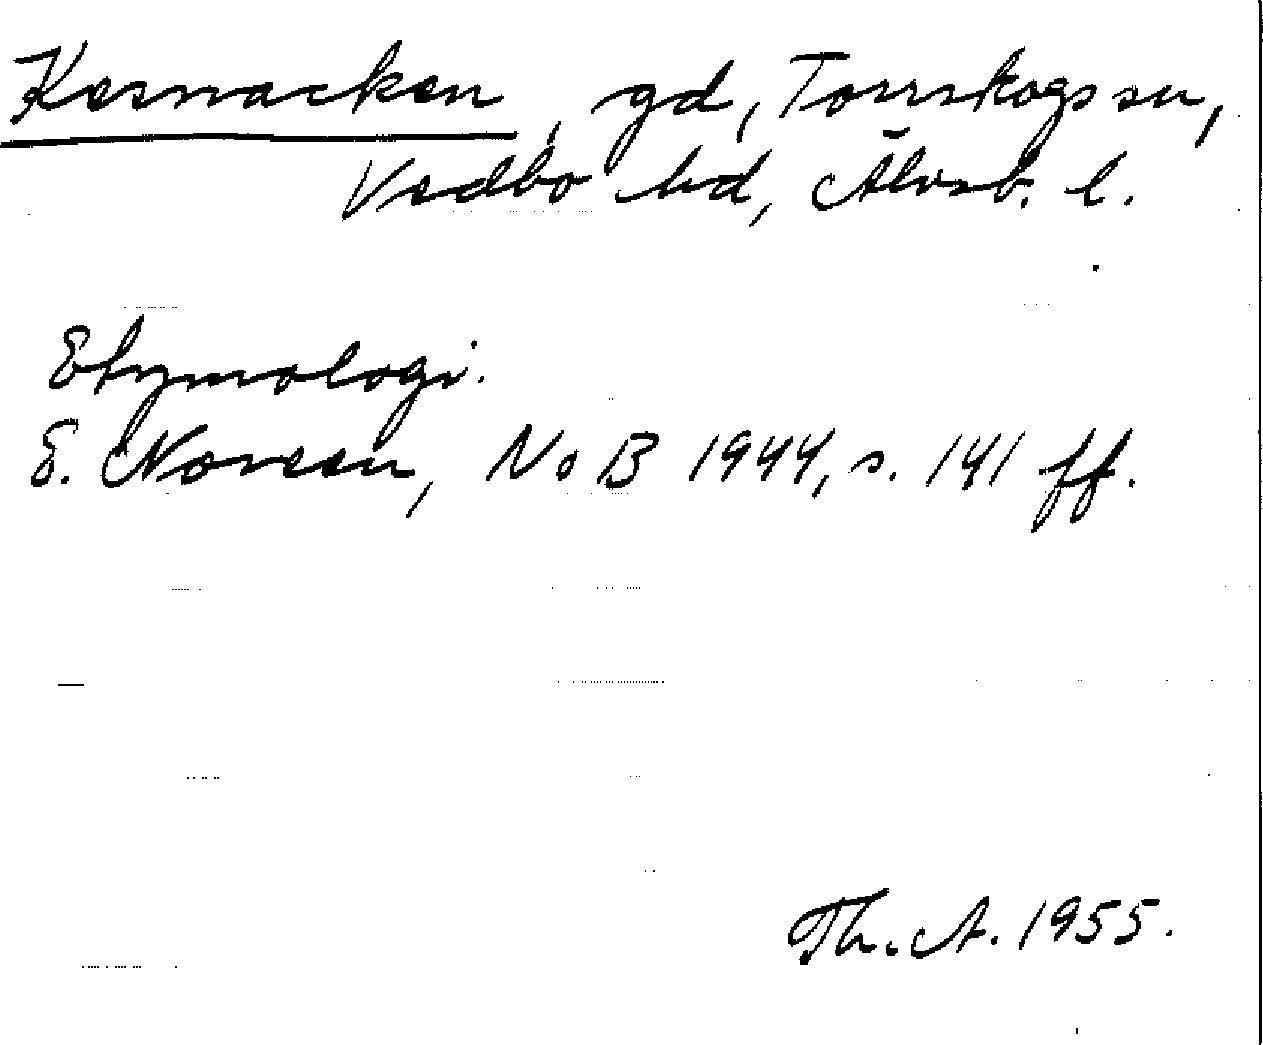 Kesnacken, gd, Torrskogs sn,
Vedbo hd, Älvsb. l.
Etymologi.
E. Noreen, NoB 1944, s. 141 ff.
Th. A. 1955.